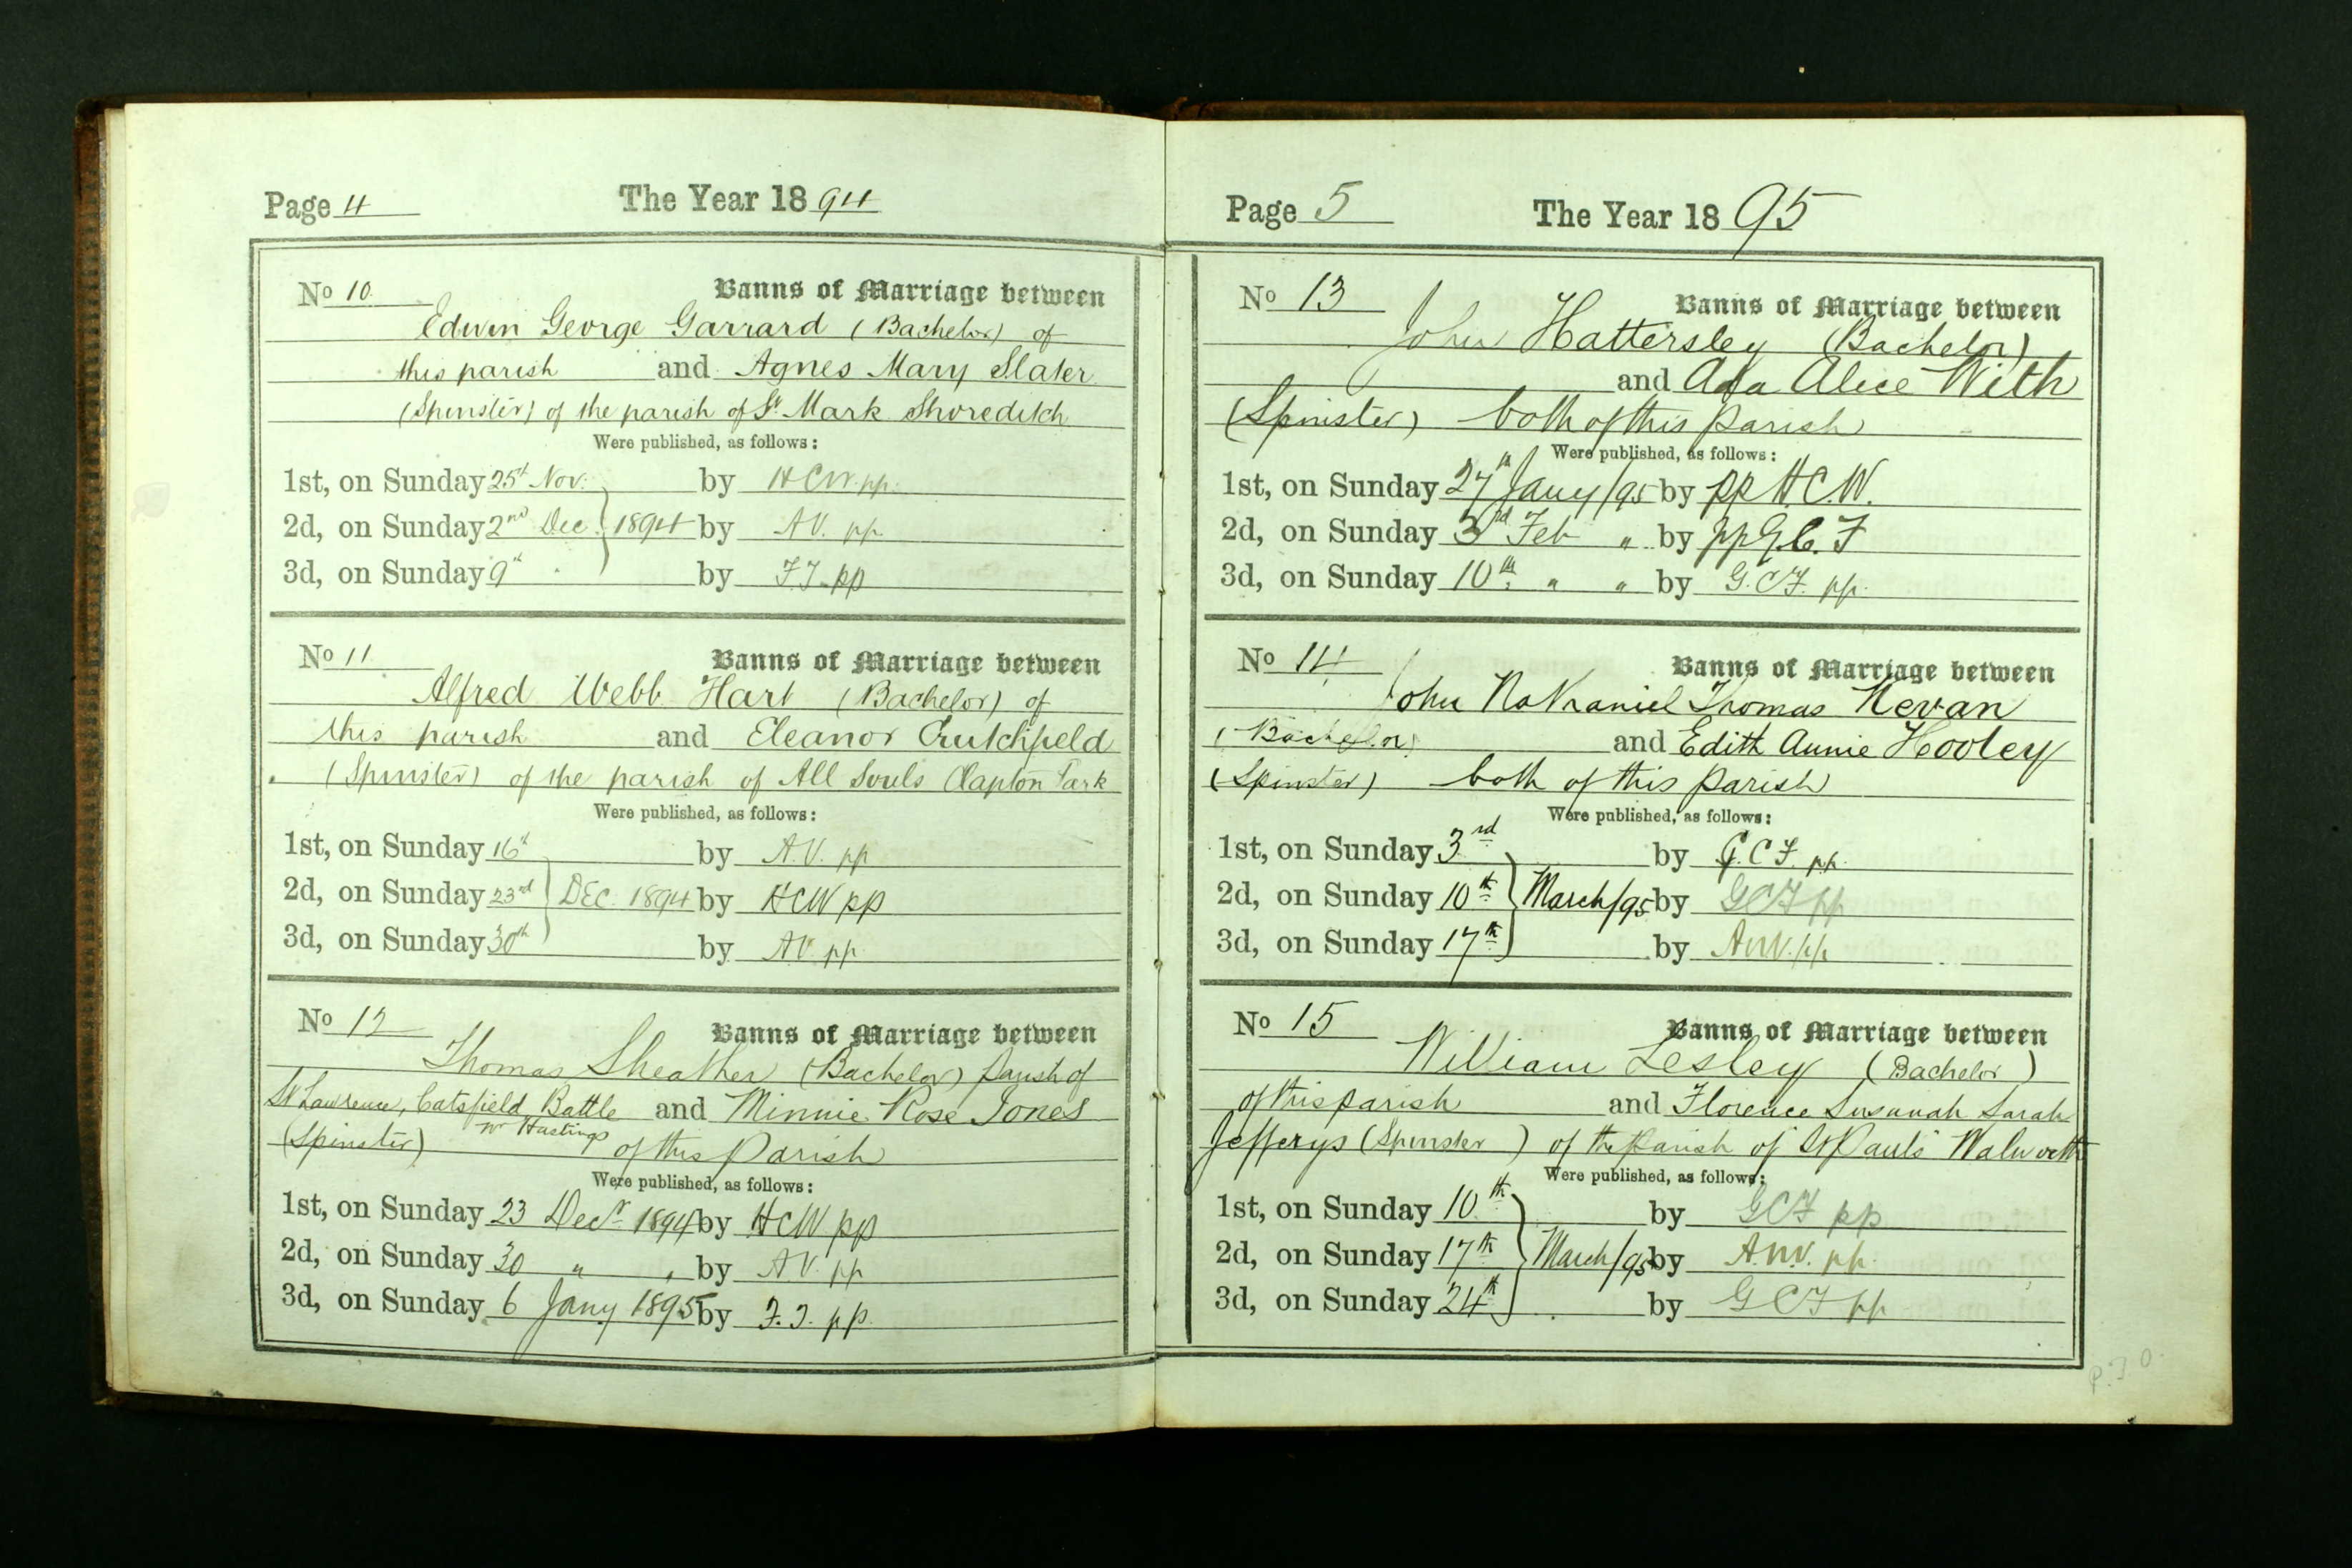 Page 4 The Year 1894
No 10 Banns of Marriage between
Edwin George Garrard (Bachelor) of
this parish and Agnes Mary Slater
(Spinster) of the parish of St Mark Shoreditch
Were published, as follows:
1st, on Sunday 25th Nov. by HCW. pp.
2d, on Sunday 2nd Dec. 1894 by AV. pp.
3d, on Sunday 9th by F.J. pp
No 11 Banns of Marriage between
Alfred Webb Hart (Bachelor) of
this parish and Eleanor Crutchfield
(Spinster) of the parish of All Souls Clapton Park
Were published, as follows:
1st, on Sunday 16th by A.V. pp
2d, on Sunday 23rd DEC. 1894 by HCW pp
3d, on Sunday 30th by AV. pp.
No 12 Banns of Marriage between
Thomas Sheather (Bachelor) Parish of
St Lawrence, Catsfield, Battle and Minnie Rose Jones
(Spinster) nr Hastings of this Parish
Were published, as follows:
1st, on Sunday 23 Decr 1894 by HCW pp
2d, on Sunday 30 " " by AV. pp
3d, on Sunday 6 Jany 1895 by F.J. pp.
Page 5 The Year 1895
No 13 Banns of Marriage between
John Hattersley (Bachelor)
and Ada Alice With
(Spinster) both of this Parish
Were published, as follows:
1st, on Sunday 27th Jany/95 by pp H.C.W.
2d, on Sunday 3rd Feb " by pp G.C.F
3d, on Sunday 10th " " by G.C.F. pp.
No 14 Banns of Marriage between
John Nathaniel Thomas Nevan
(Bachelor) and Edith Annie Hooley
(Spinster) both of this Parish
Were published, as follows:
1st, on Sunday 3rd by G.C.F. pp.
2d, on Sunday 10th March/95 by GCF pp
3d, on Sunday 17th by A.W.V. pp
No 15 Banns of Marriage between
William Lesley (Bachelor)
of this parish and Florence Susanah Sarah
Jefferys (Spinster) of the Parish of St Paul's Walworth
Were published, as follows:
1st, on Sunday 10th by GCF pp
2d, on Sunday 17th March/95 by A.W.V. pp.
3d, on Sunday 24th by GCF pp
P.T.O.